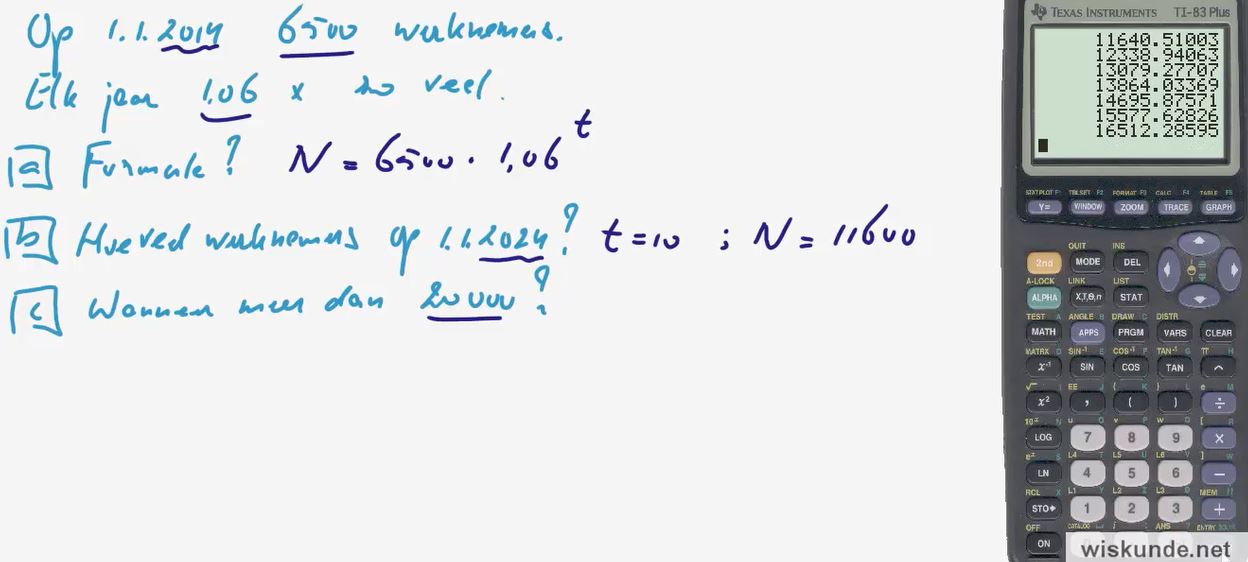 Op 1.1.2014 6500 werknemers.
Elk jaar 1,06 x zo veel.
a Formule? N = 6500 · 1,06^t
b Hoeveel werknemers op 1.1.2024? t = 10 ; N = 11600
c Wanneer meer dan 20 000?
TEXAS INSTRUMENTS TI-83 Plus
11640.51003
12338.94063
13079.27707
13864.03369
14695.87571
15577.62826
16512.28595
STAT PLOT F1 TBLSET F2 FORMAT F3 CALC F4 TABLE F5
Y= WINDOW ZOOM TRACE GRAPH
QUIT INS
2nd MODE DEL
A-LOCK LINK LIST
ALPHA X,T,Θ,n STAT
TEST A ANGLE B DRAW C DISTR
MATH APPS PRGM VARS CLEAR
MATRX D SIN⁻¹ E COS⁻¹ F TAN⁻¹ G π H
x⁻¹ SIN COS TAN ^
√ I EE J { K } L e M
x² , ( ) ÷
10ˣ N u O v P w Q [ R
LOG 7 8 9 ×
eˣ S L4 T L5 U L6 V ] W
LN 4 5 6 −
RCL X L1 Y L2 Z L3 Θ MEM "
STO▸ 1 2 3 +
OFF CATALOG i : ANS ? ENTRY SOLVE
ON
wiskunde.net